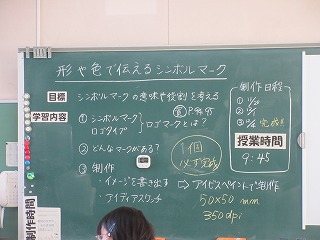 形や色で伝えるシンボルマーク
目標
シンボルマークの意味や役割を考える
学習内容
① シンボルマーク
ロゴタイプ
ロゴマークとは?
② どんなマークがある?
③ 制作
・イメージを書き出す
・アイディアスケッチ
1個
必ず完成
⇨ アイビスペイントで制作
50×50 mm
350dpi
制作日程
①
②
③
完成!!
授業時間
9:45
制作時間